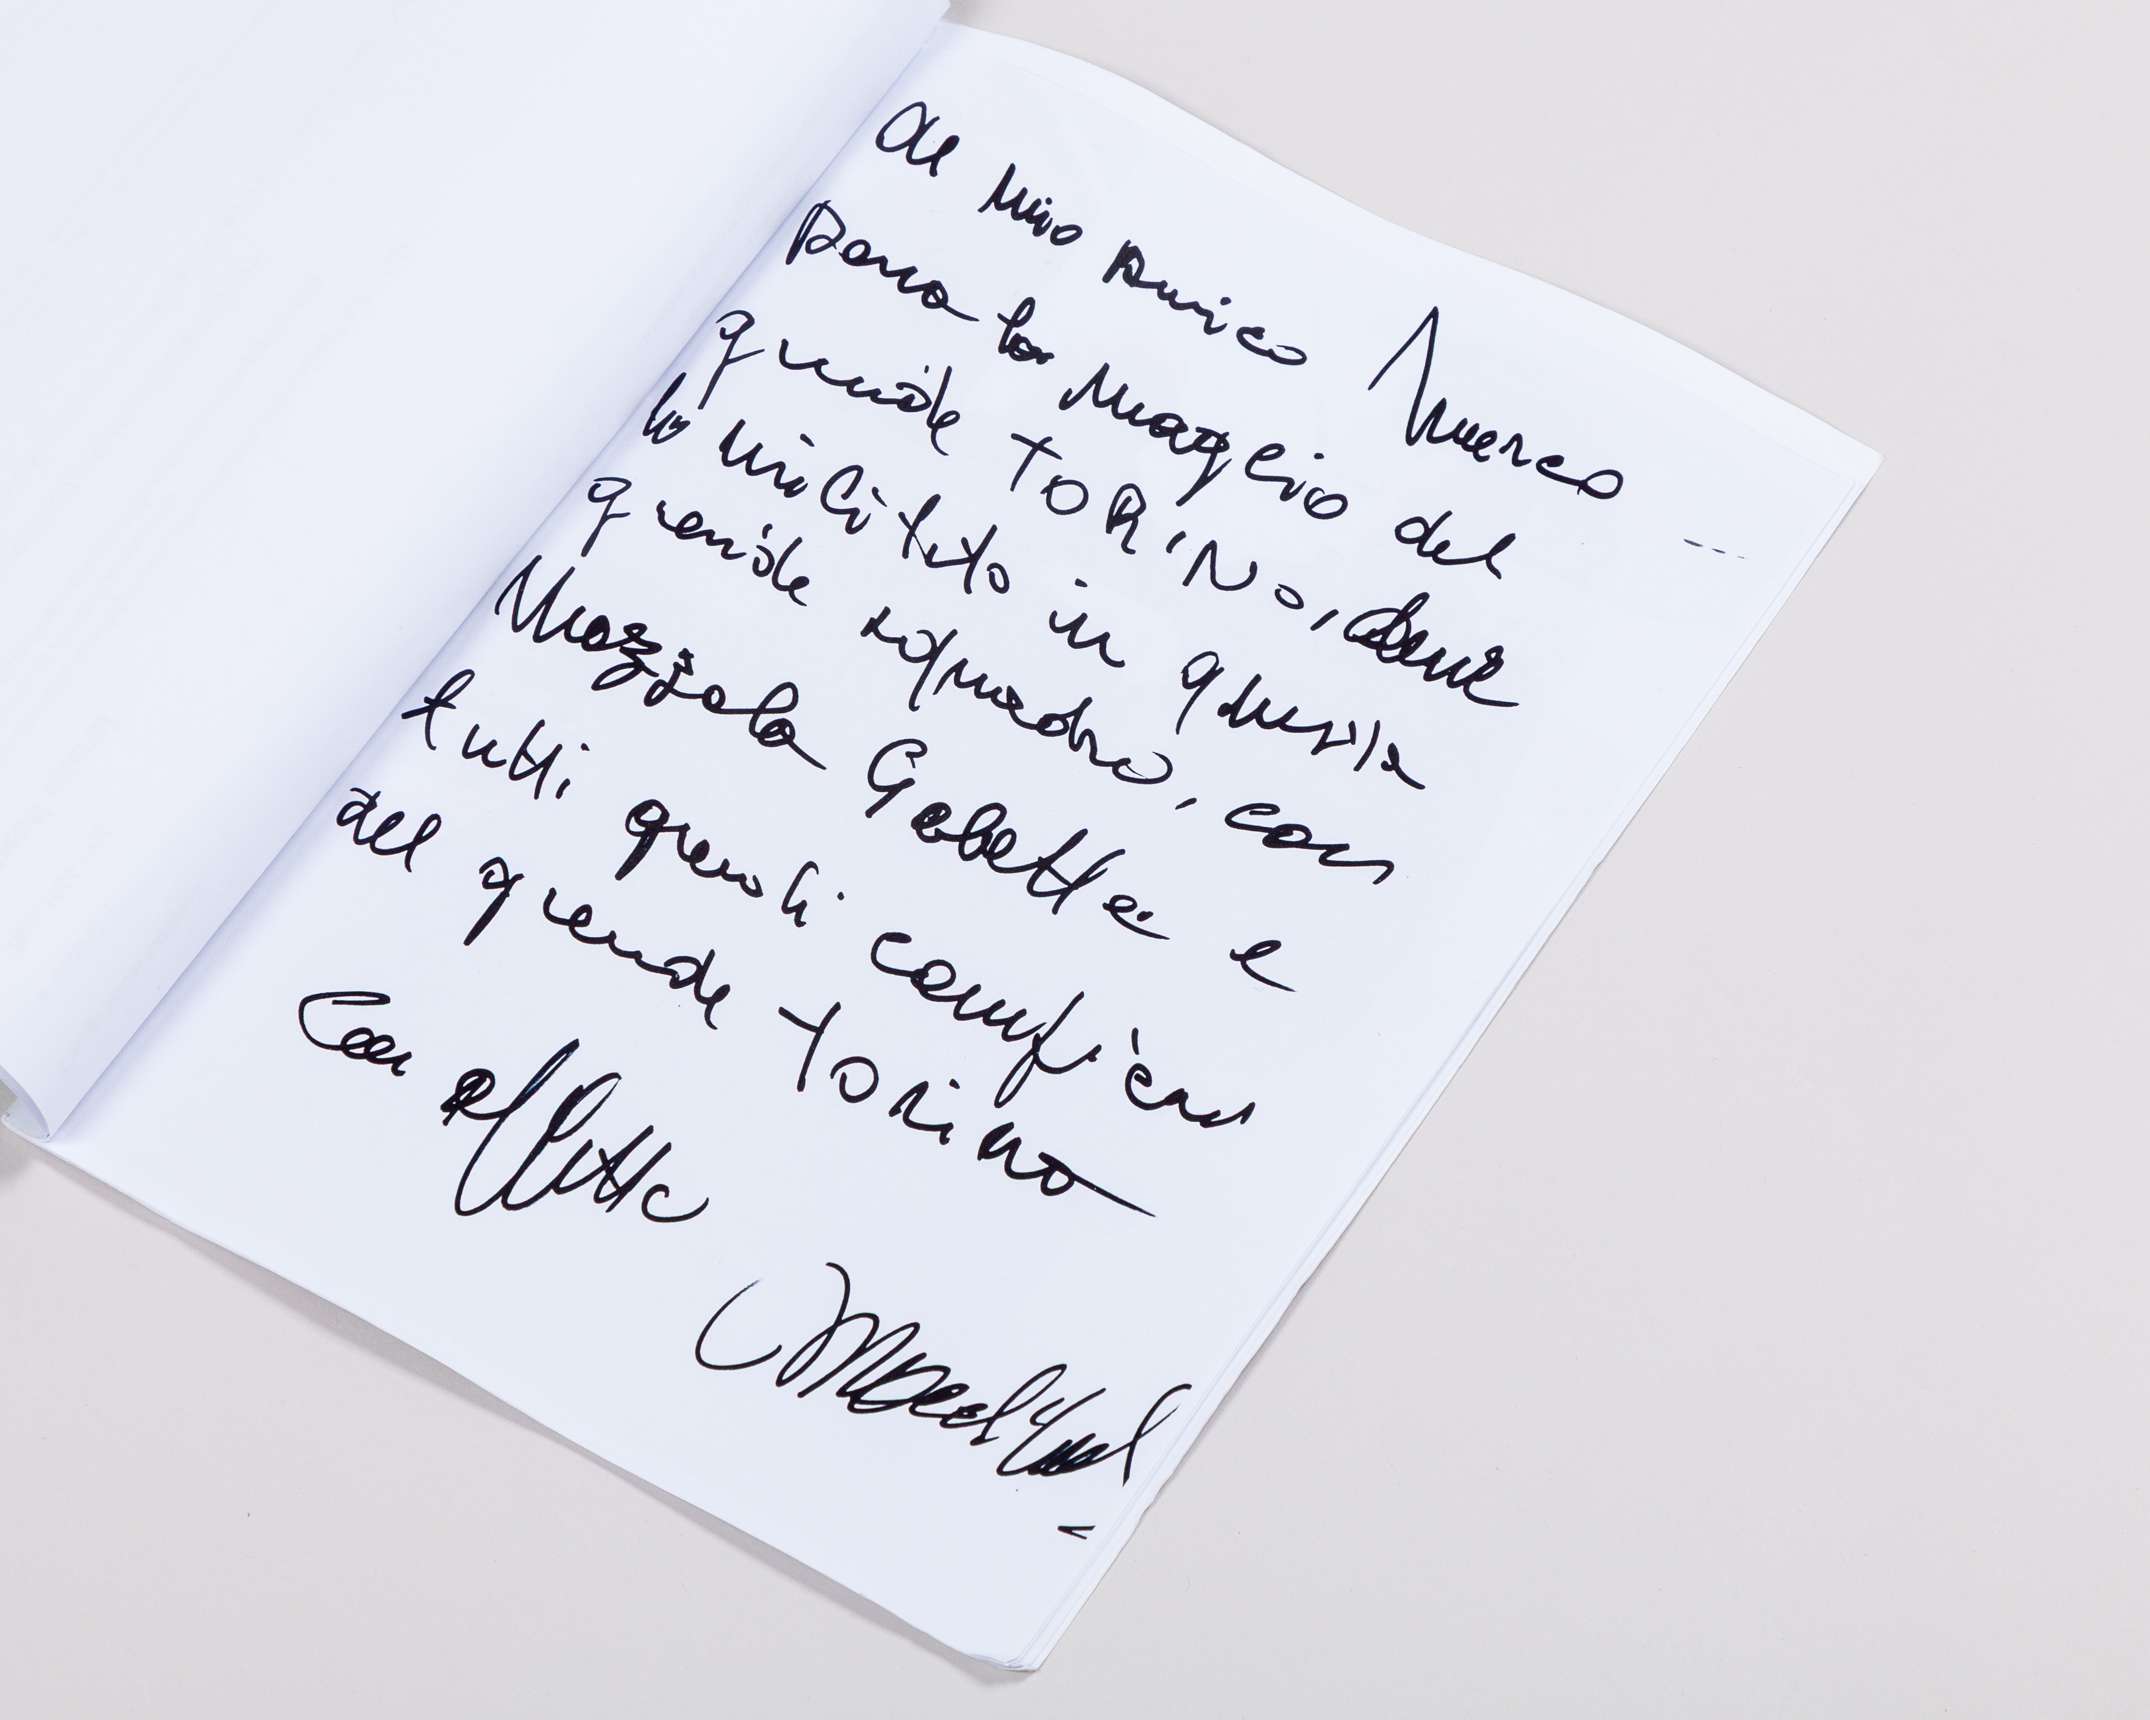 Al mio Amico Marco
Dono la Maglia del
grande TORINO, dove
ho militato in questa
grande squadra, con
Mazzola Gabetto e
tutti grandi campioni
del grande Torino
Con affetto